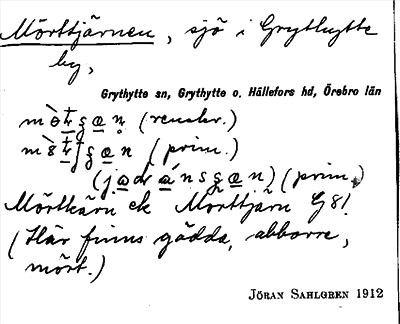 Mörttjärnen, sjö i Grythytte
by,
Grythytte sn, Grythytte o. Hällefors hd, Örebro län
(renskr.)
(prim.)
(prim.)
Mörtkärn ek Morttjärn G 81.
(Här finns gädda, abborre,
mört.)
JÖRAN SAHLGREN 1912